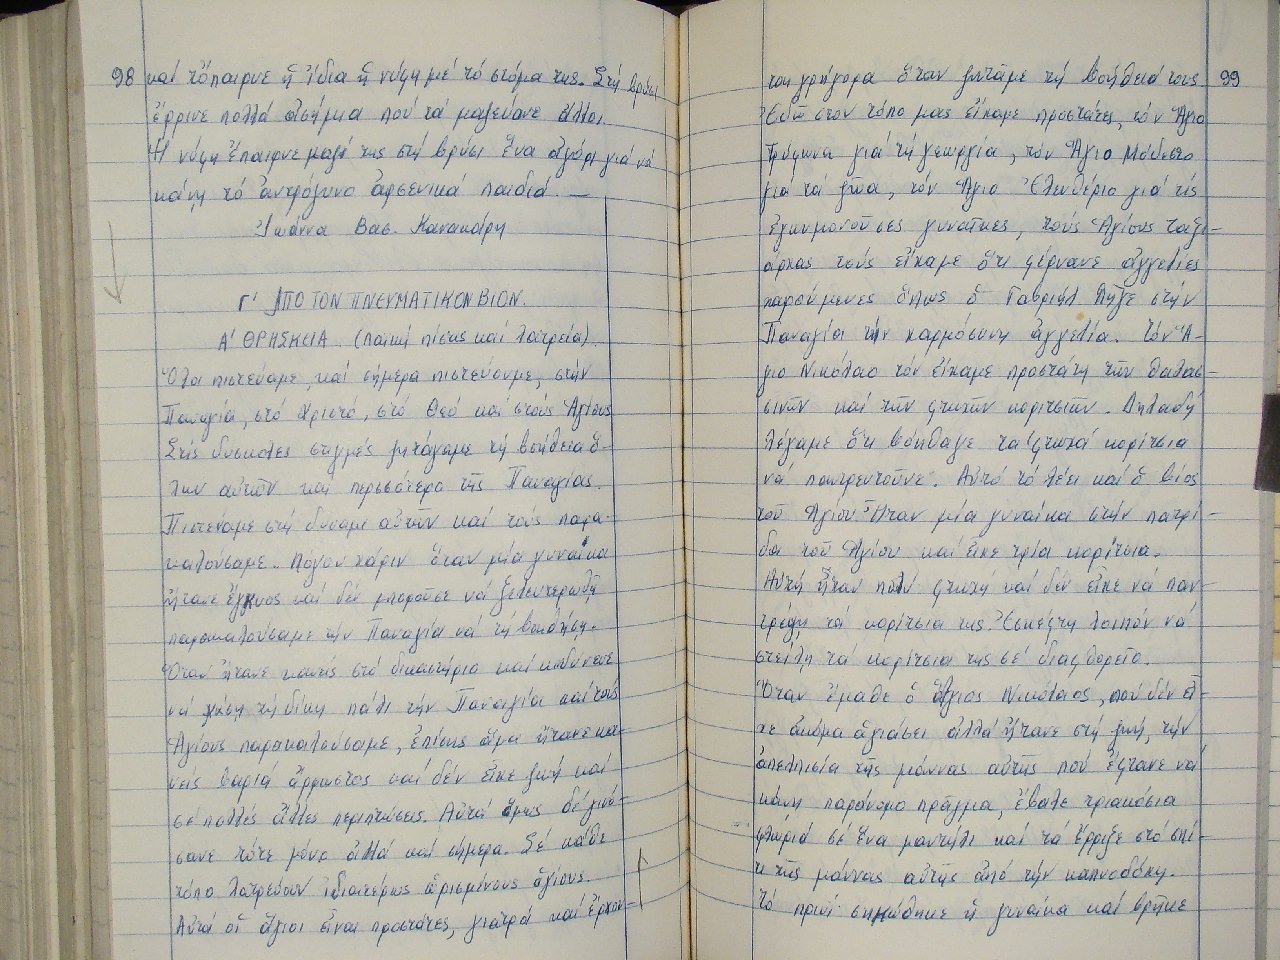 98
καί τὄπαιρνε ἡ ἴδια ἡ νύφη μέ τό στόμα της. Στή βρύσι
ἔρρινε πολλά ἀσήμια πού τά μαζεύανε ἄλλοι.
Ἡ νύφη ἔπαιρνε μαζί της στή βρύσι ἕνα ἀγόρι γιά νά
κάνῃ τό ἀντρόγυνο ἀρσενικά παιδιά. —
Ἰωάννα Βασ. Κανακάρη
Γ' ΑΠΟ ΤΟΝ ΠΝΕΥΜΑΤΙΚΟΝ ΒΙΟΝ.
Α' ΘΡΗΣΚΕΙΑ. (Λαϊκή πίστις καί λατρεία).
Ὅλοι πιστεύαμε, καί σήμερα πιστεύουμε, στήν
Παναγία, στό Χριστό, στό Θεό καί στούς Ἁγίους
Στίς δύσκολες στιγμές ζητάγαμε τή βοήθεια ὅ-
λων αὐτῶν καί περισσότερο τῆς Παναγίας.
Πιστεύαμε στή δύναμι αὐτῶν καί τούς παρα-
καλούσαμε. Λόγου χάριν ὅταν μία γυναίκα
ἤτανε ἔγκυος καί δέν μποροῦσε νά ξελευτερωθῇ
παρακαλούσαμε τήν Παναγία νά τή βοηθήσῃ.
Ὅταν ἤτανε κανείς στό δικαστήριο καί κινδύνευε
νά χάσῃ τή δίκη πάλι τήν Παναγία καί τούς
Ἁγίους παρακαλούσαμε, ἐπίσης ἅμα ἤτανε κα-
νείς βαριά ἄρρωστος καί δέν εἶχε ζωή καί
σέ πολλές ἄλλες περιπτώσεις. Αὐτά ὅμως δέ γινό-
σανε τότε μόνο ἀλλά καί σήμερα. Σέ κάθε
τόπο λατρεύουν ἰδιαιτέρως ὡρισμένους ἁγίους.
Αὐτοί οἱ ἅγιοι εἶναι προστάτες, γιατροί καί ἔρχον-
99
ται γρήγορα ὅταν ζητᾶμε τή βοήθειά τους
Ἐδῶ στόν τόπο μας εἴχαμε προστάτες, τόν Ἅγιο
Τρύφωνα γιά τή γεωργία, τόν Ἅγιο Μόδεστο
γιά τά ζῶα, τόν Ἅγιο Ἐλευθέριο γιά τίς
ἐγκυμονοῦσες γυναῖκες, τούς Ἁγίους ταξι-
άρχας τούς εἴχαμε ὅτι φέρνανε ἀγγελίες
χαρούμενες ὅπως ὁ Γαβριήλ πῆγε στήν
Παναγία τήν χαρμόσυνη ἀγγελία. Τόν Ἅ-
γιο Νικόλαο τόν εἴχαμε προστάτη τῶν θαλασ-
σινῶν καί τῶν φτωχῶν κοριτσιῶν. Δηλαδή
λέγαμε ὅτι βόηθαγε τά φτωχά κορίτσια
νά παντρευτοῦνε. Αὐτό τό λέει καί ὁ βίος
τοῦ Ἁγίου. Ἦταν μία γυναίκα στήν πατρί-
δα τοῦ Ἁγίου καί εἶχε τρία κορίτσια.
Αὐτή ἦταν πολύ φτωχή καί δέν εἶχε νά παν-
τρέψῃ τά κορίτσια της. Ἐσκέφτη λοιπόν νά
στείλῃ τά κορίτσια της σέ διαφθορεῖο.
Ὅταν ἔμαθε ὁ ἅγιος Νικόλαος, πού δέν εἶ-
χε ἀκόμα ἁγιάσει ἀλλά ἤτανε στή ζωή, τήν
ἀπελπισία τῆς μάννας αὐτῆς πού ἔφτανε νά
κάνῃ παράνομο πρᾶγμα, ἔβαλε τριακόσια
φλωριά σέ ἕνα μαντήλι καί τά ἔρριξε στό σπί-
τι τῆς μάννας αὐτῆς ἀπό τήν καπνοδόχη.
Τό πρωί σηκώθηκε ἡ γυναίκα καί βρῆκε